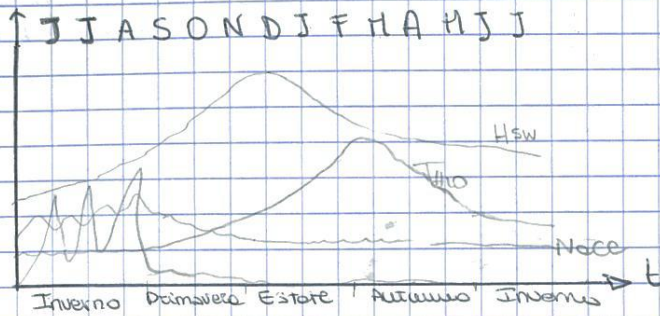 J J A S O N D J F M A M J J
HSW
TH2O
Nocc
t
Inverno Primavera Estate Autunno Inverno